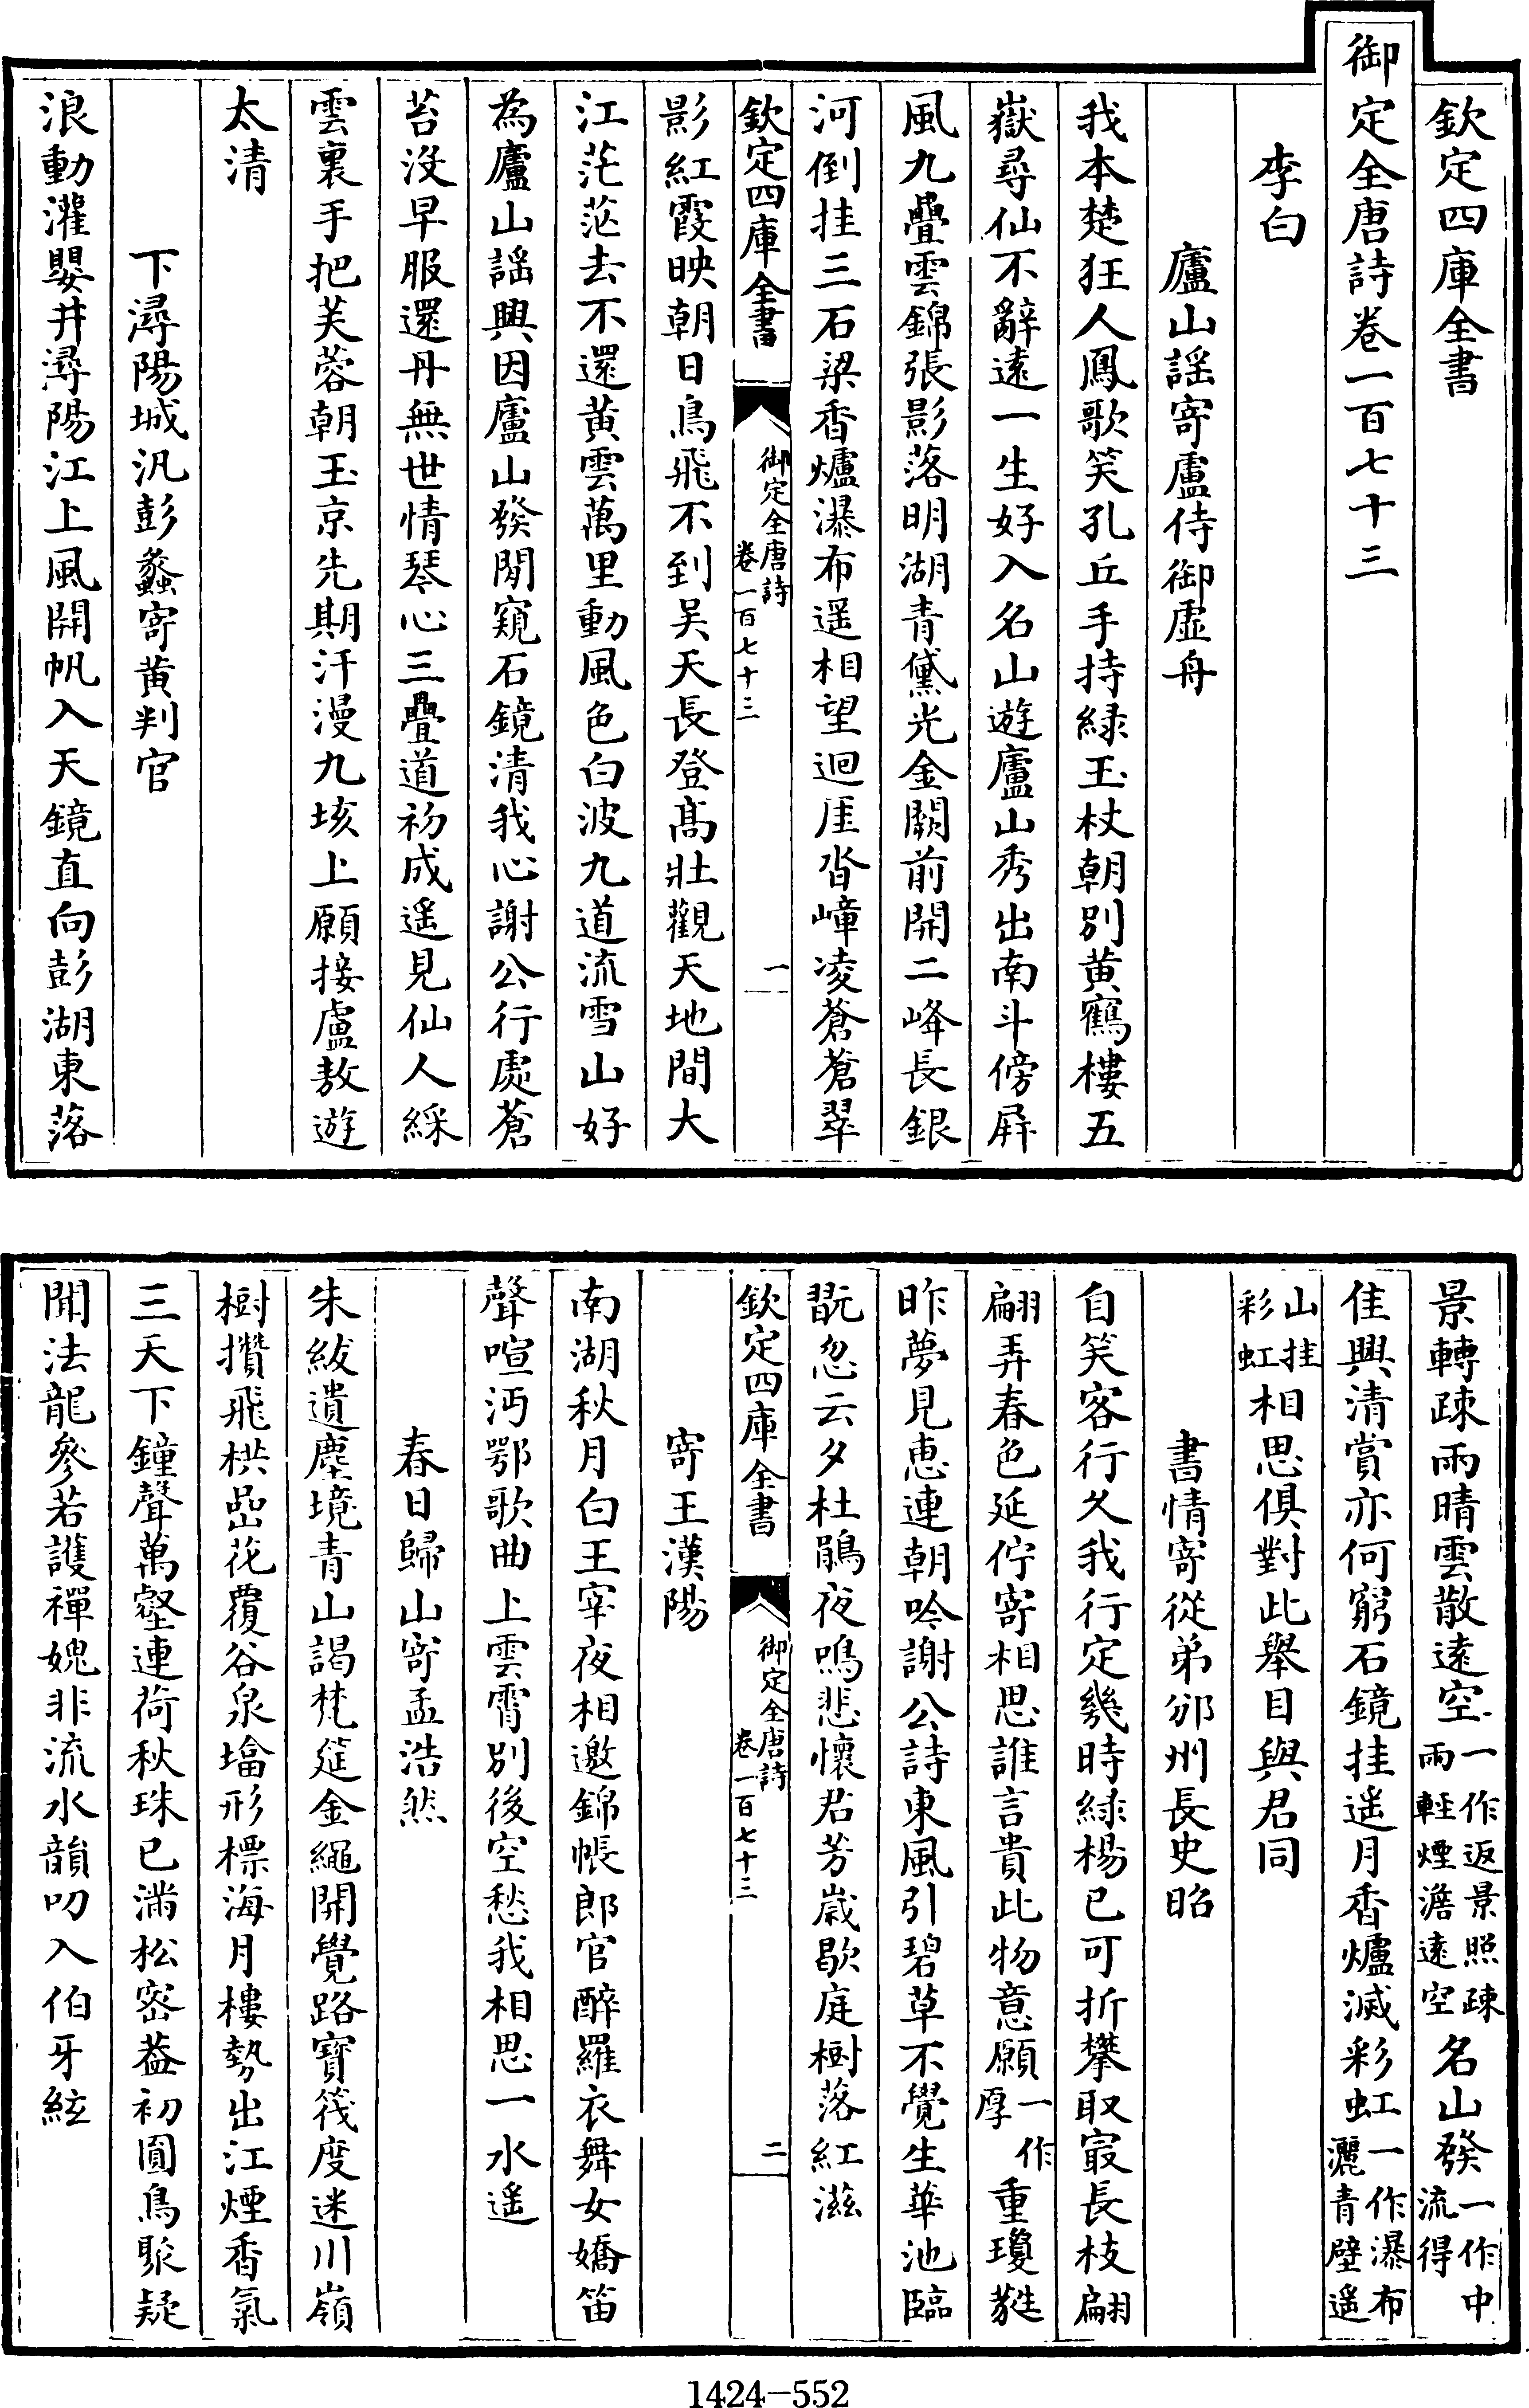 欽定四庫全書
御定全唐詩卷一百七十三
李白
廬山謡寄盧侍御虛舟
我本楚狂人鳳歌笑孔丘手持緑玉杖朝別黄鶴樓五
嶽尋仙不辭遠一生好入名山遊廬山秀出南斗傍屛
風九疊雲錦張影落明湖青黛光金闕前開二峰長銀
河倒挂三石梁香爐瀑布遥相望迴厓沓嶂凌蒼蒼翠
欽定四庫全書
御定全唐詩
卷一百七十三
一
影紅霞映朝日鳥飛不到吳天長登髙壯觀天地間大
江茫茫去不還黄雲萬里動風色白波九道流雪山好
為廬山謡興因廬山發閒窺石鏡清我心謝公行處蒼
苔沒早服還丹無世情琴心三疊道初成遥見仙人綵
雲裏手把芙蓉朝玉京先期汗漫九垓上願接盧敖遊
太清
下潯陽城汎彭蠡寄黄判官
浪動灌嬰井潯陽江上風開帆入天鏡直向彭湖東落
景轉疎雨晴雲散遠空一作返景照疎雨輕煙澹遠空名山發一作中流得
佳興清賞亦何窮石鏡挂遥月香爐滅彩虹一作瀑布灑青壁遥
山挂彩虹相思俱對此舉目與君同
書情寄從弟邠州長史昭
自笑客行久我行定幾時緑楊已可折攀取㝡長枝翩
翩弄春色延佇寄相思誰言貴此物意願一作厚重瓊蕤
昨夢見惠連朝吟謝公詩東風引碧草不覺生華池臨
翫忽云夕杜鵑夜鳴悲懷君芳歲歇庭樹落紅滋
欽定四庫全書
御定全唐詩
卷一百七十三
二
寄王漢陽
南湖秋月白王宰夜相邀錦帳郎官醉羅衣舞女嬌笛
聲喧沔鄂歌曲上雲霄別後空愁我相思一水遥
春日歸山寄孟浩然
朱紱遺塵境青山謁梵筵金繩開覺路寶筏度迷川嶺
樹攢飛栱嵒花覆谷泉塔形標海月樓勢出江煙香氣
三天下鐘聲萬壑連荷秋珠已滿松宻葢初圓鳥聚疑
聞法龍參若護禪媿非流水韻叨入伯牙絃
1424—552